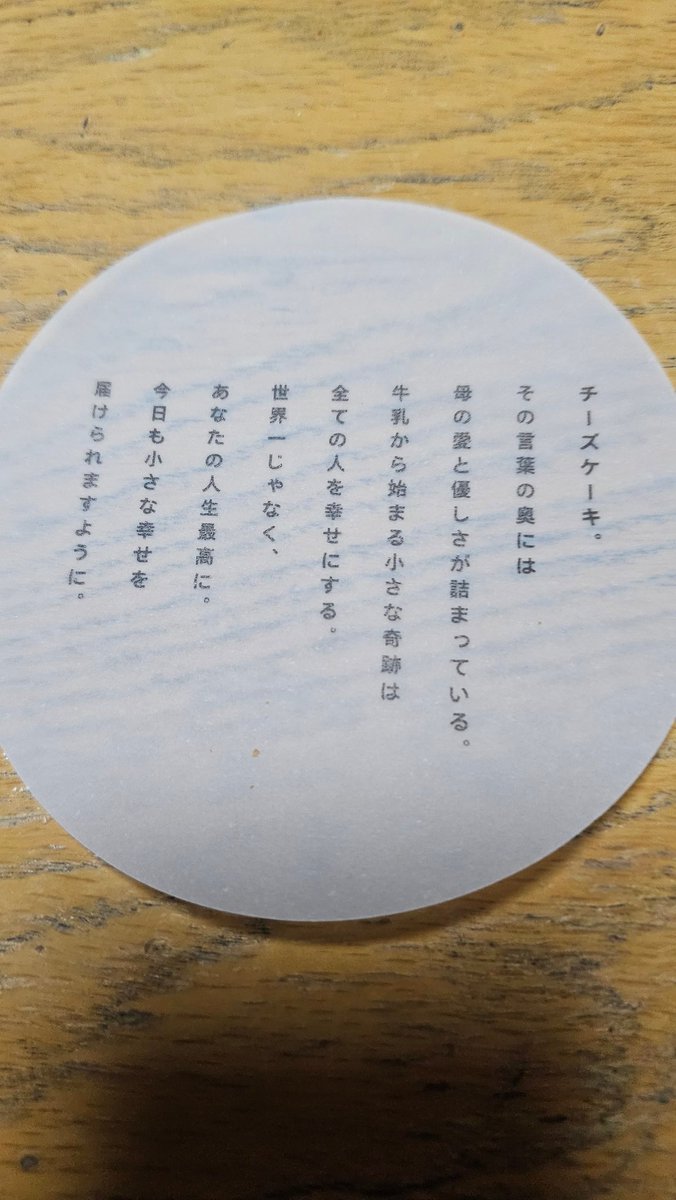 チーズケーキ。
その言葉の奥には
母の愛と優しさが詰まっている。
牛乳から始まる小さな奇跡は
全ての人を幸せにする。
世界一じゃなく、
あなたの人生最高に。
今日も小さな幸せを
届けられますように。